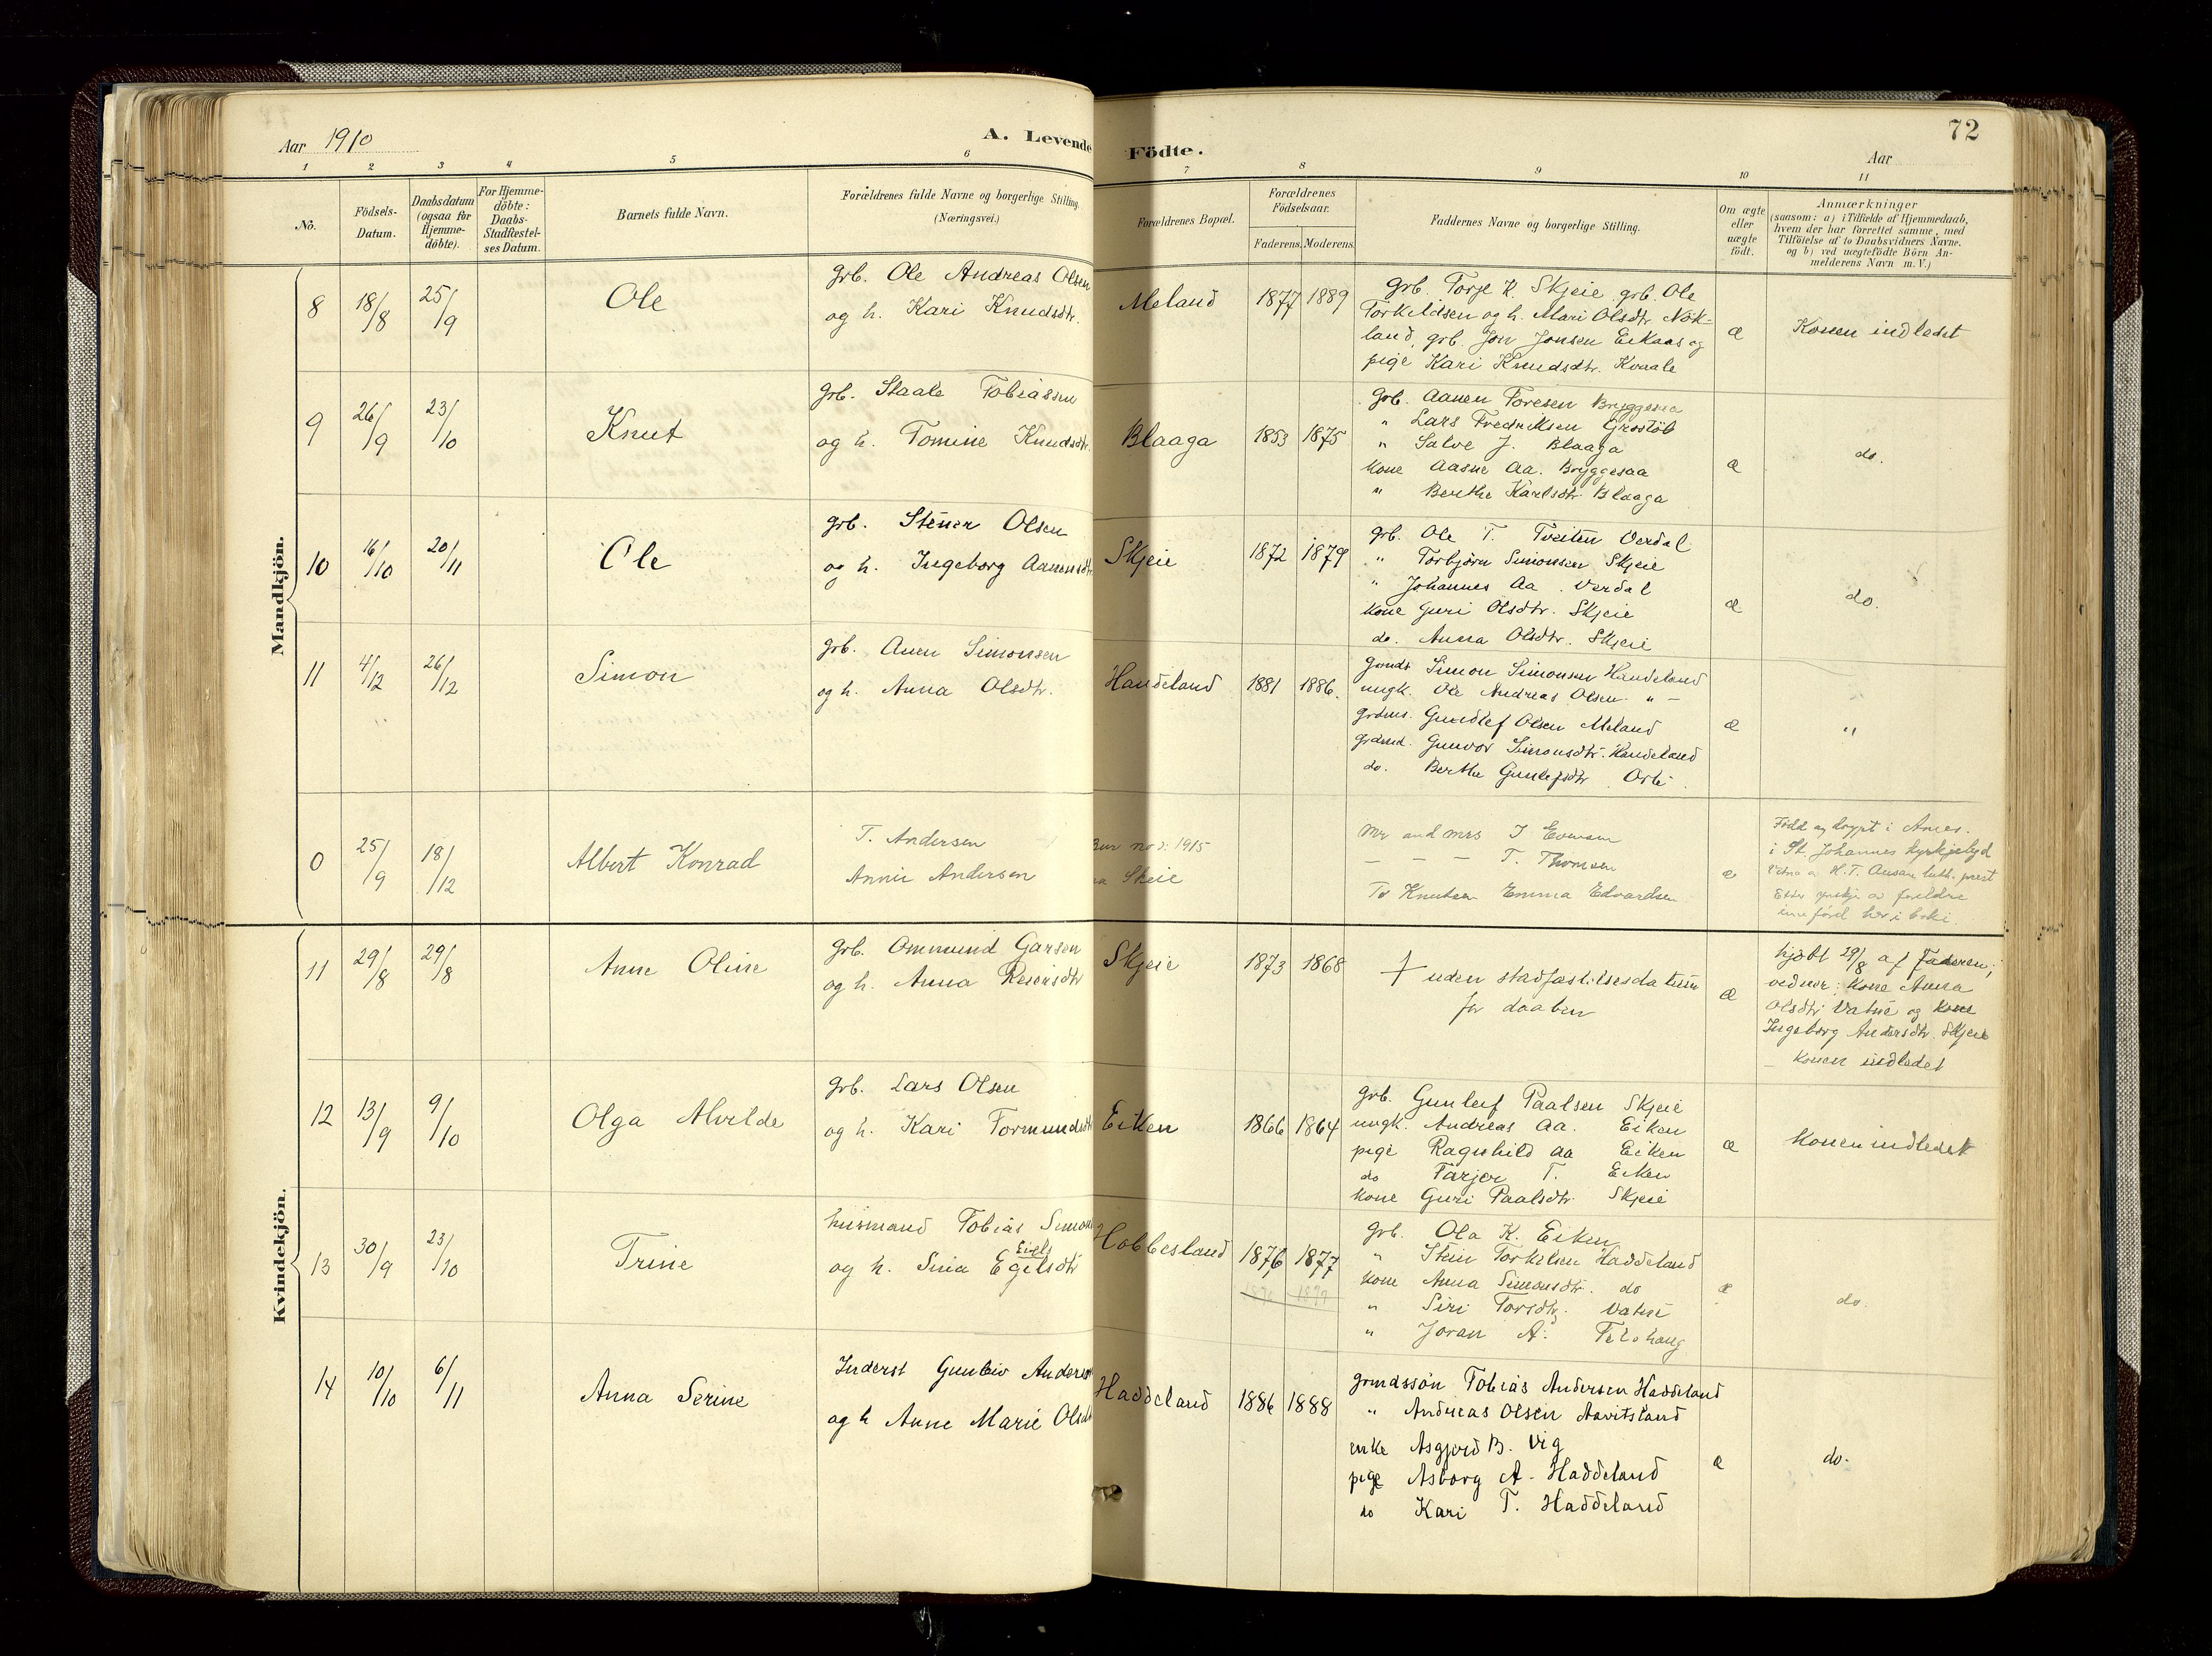 Aar 1910
A. Levende Födte.
72
Aar
1 2 3 4 5 6 7 8 9 10 11
No.
Födsels-
Datum.
Daabsdatum
(ogsaa for
Hjemme-
döbte).
For Hjemme-
döbte:
Daabs-
Stadfæstel-
ses Datum.
Barnets fulde Navn.
Forældrenes fulde Navne og borgerlige Stilling
(Næringsvei.)
Forældrenes Bopæl.
Forældrenes
Födselsaar.
Faderens. Moderens.
Faddernes Navne og borgerlige Stilling.
Om ægte
eller
uægte
födt.
Anmærkninger
(saasom: a) i Tilfælde af Hjemmedaab,
hvem der har forrettet samme, med
Tilföielse af to Daabsvidners Navne.
og b) ved uægtefödte Börn An-
melderens Navn m. V.)
Mandkjön.
8 18/8 25/9 Ole
grb. Ole Andreas Olsen
og h. Kari Knudsdtr.
Meland 1877 1889
grb. Torje K. Skjeie grb. Ole
Torkildsen og h. Mari Olsdtr. Nök-
land, grb. Jon Jonsen Eikaas og
pige Kari Knudsdtr. Kvaale
æ Konen indledet
9 26/9 23/10 Knut
grb. Staale Tobiassen
og h. Tomine Knudsdtr.
Blaaga 1853 1875
grb. Aanen Toresen Bryggesaa
" Lars Fredriksen Gröstöl
" Salve J. Blaaga
kone Aasne Aa. Bryggesaa
" Berthe Karlsdtr. Blaaga
æ do.
10 16/10 20/11 Ole
grb. Stener Olsen
og h. Ingeborg Aanensdtr
Skjeie 1872 1879
grb. Ole T. Tveiten Verdal
" Torbjörn Simonsen Skjeie
" Johannes Aa. Verdal
kone Guri Olsdtr. Skjeie
do. Anna Olsdtr. Skjeie
æ do.
11 4/12 26/12 Simon
grb. Anen Simonsen
og h. Anna Olsdtr.
Handeland 1881 1886.
Simon Simonsen Handeland
ungk. Ole Andreas Olsen " –
grdms. Gundlef Olsen Meland
grdmd. Gunvor Simonsdtr. Handeland
do. Berthe Gunlefsdtr
æ "
0 25/9 18/12 Albert Konrad
T. Andersen
Annie Andersen
Bur no i 1915
Skeie
Mr and mrs J
– – – T. Thomsen
To Knutsen Emma Edvardsen
æ
Född og döypt i Amer.
i St. Johannes kyrkjelyd
H. T. luth. prest
Etter ynskje av foreldre
innförd her i boki
Kvindekjön.
11 29/8 29/8 Anne Oline
grb. Ommund Garsen
og h. Anna Reiersdtr
Skjeie 1873 1868
† uden stadfæstilsesdatum
for daaben
æ
hjdöbt 29/8 af Faderen;
vidner: Kone Anna
Olsdtr Vatne og kone
Ingeborg Andersdtr. Skjeie
– Konen indledet
12 13/9 9/10 Olga Alvilde
grb. Lars Olsen
og h. Kari Tormundsdtr
Eiken 1866 1864
grb. Gunleif Paalsen Skjeie
ungk. Andreas Aa. Eiken
pige Ragnhild Aa Eiken
do Tarjer T. Eiken
kone Guri Paalsdtr. Skjeie
æ Konen indledet
13 30/9 23/10 Trine
husmand Tobias Simons
Eiels
og h. Sina Egilsdtr
Hobbesland 1876 1877
grb. Ola K. Eiken
" Stein Torkelsen Haddeland
kone Anna Simonsdtr. do
" Siri Torsdtr. Vatne
" Joran A.
æ do.
14 10/10 6/11 Anna Serine
Inderst Gunleiv Anders
og h Anne Marie Olsdt
Haddeland 1886 1888
grmdssön Tobias Andersen Haddeland
" Andreas Olsen Aavitsland
enke Asgjerd B. Vig
pige Asborg A. Haddeland
do Kari T. Haddeland
æ do.